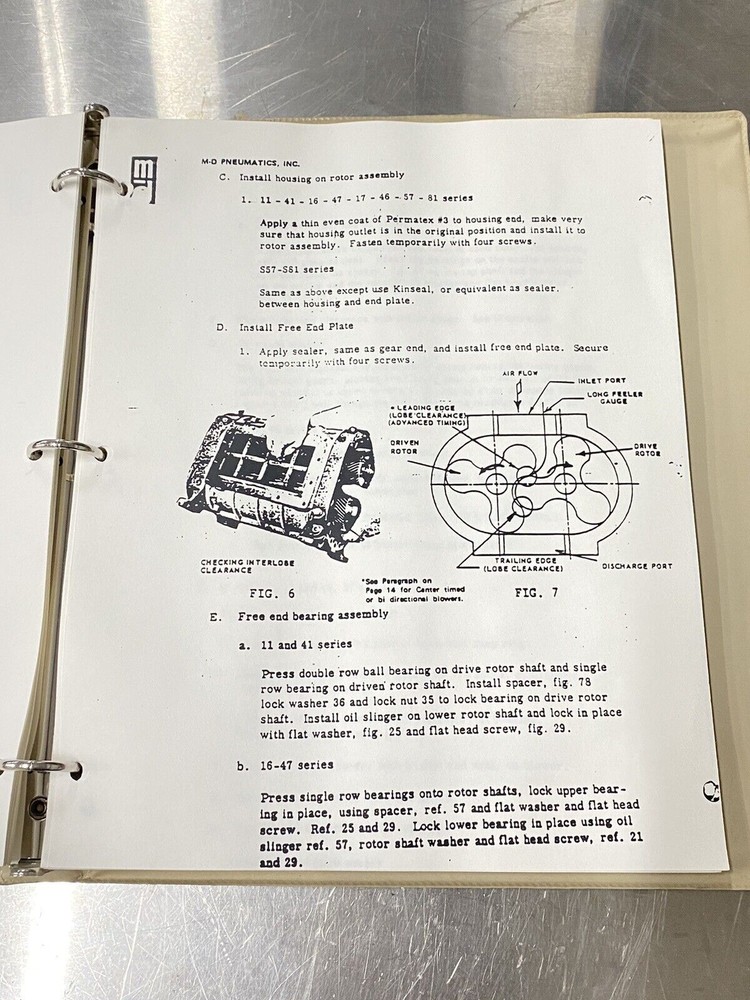 M-D PNEUMATICS, INC.
C. Install housing on rotor assembly
1. 11 - 41 - 16 - 47 - 17 - 46 - 57 - 81 series
Apply a thin even coat of Permatex #3 to housing end, make very
sure that housing outlet is in the original position and install it to
rotor assembly. Fasten temporarily with four screws.
S57-S81 series
Same as above except use Kinseal, or equivalent as sealer,
between housing and end plate.
D. Install Free End Plate
1. Apply sealer, same as gear end, and install free end plate. Secure
temporarily with four screws.
AIR FLOW
INLET PORT
LONG FEELER
GAUGE
* LEADING EDGE
(LOBE CLEARANCE)
(ADVANCED TIMING)
DRIVEN
ROTOR
DRIVE
ROTOR
TRAILING EDGE
(LOBE CLEARANCE)
DISCHARGE PORT
CHECKING INTERLOBE
CLEARANCE
FIG. 6
*See Paragraph on
Page 14 for Center timed
or bi directional blowers.
FIG. 7
E. Free end bearing assembly
a. 11 and 41 series
Press double row ball bearing on drive rotor shaft and single
row bearing on driven rotor shaft. Install spacer, fig. 78
lock washer 36 and lock nut 35 to lock bearing on drive rotor
shaft. Install oil slinger on lower rotor shaft and lock in place
with flat washer, fig. 25 and flat head screw, fig. 29.
b. 16-47 series
Press single row bearings onto rotor shafts, lock upper bear-
ing in place, using spacer, ref. 57 and flat washer and flat head
screw. Ref. 25 and 29. Lock lower bearing in place using oil
slinger ref. 57, rotor shaft washer and flat head screw, ref. 21
and 29.